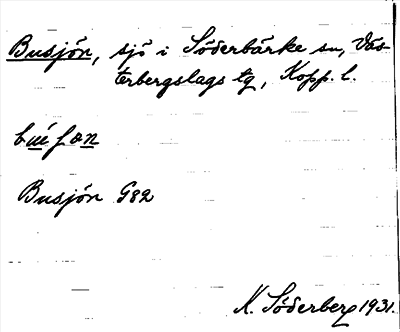 Busjön, sjö i Söderbärke sn, Väs-
terbergslags tg, Kopp. l.
Busjön G82
K. Söderberg 1931.